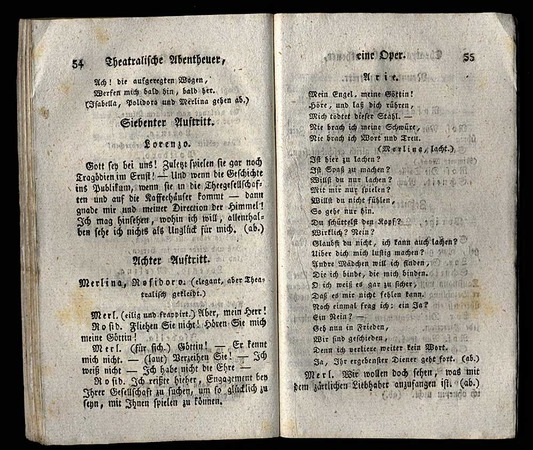 54 Theatralische Abentheuer,
Ach! die aufgeregten Wogen,
Werfen mich bald hin, bald her.
(Isabella, Polidoro und Merlina gehen ab.)
Siebenter Auftritt.
Lorenzo.
Gott sey bei uns! Zuletzt spielen sie gar noch
Tragödien im Ernst! — Und wenn die Geschichte
ins Publikum, wenn sie in die Theegesellschaf-
ten und auf die Kaffeehäuser kommt — dann
gnade mir und meiner Direction der Himmel!
Ich mag hinsehen, wohin ich will, allenthal-
ben sehe ich nichts als Unglück für mich. (ab.)
Achter Auftritt.
Merlina, Rosidoro. (elegant, aber Thea-
tralisch gekleidet.)
Merl. (eilig und frappirt.) Aber, mein Herr!
Rosid. Fliehen Sie nicht! Hören Sie mich
meine Göttin!
Merl. (für sich.) Göttin! — Er kennt
mich nicht. — (laut) Verzeihen Sie! — Ich
weiß nicht — Ich habe nicht die Ehre —
Rosid. Ich reiste hieher, Engagement bey
Ihrer Gesellschaft zu suchen, um so glücklich zu
seyn, mit Ihnen spielen zu können.
eine Oper. 55
Arie.
Mein Engel, meine Göttin!
Höre, und laß dich rühren,
Mich tödtet dieser Stahl. —
Nie brach ich meine Schwüre,
Nie brach ich Wort und Treu.
(Merlina, lacht.)
Ist hier zu lachen?
Ist Spaß zu machen?
Willst du nur lachen?
Mit mir nur spielen?
Willst du nicht fühlen,
So gehe nur hin.
Du schüttelst den Kopf?
Wirklich? Nein?
Glaubst du nicht, ich kann auch lachen?
Ueber dich mich lustig machen?
Andre Mädchen will ich finden,
Die ich binde, die mich binden.
O ich weiß es gar zu sicher,
Daß es mir nicht fehlen kann.
Noch einmal frag ich: ein Ja?
Ein Nein? —
Geh nun in Frieden,
Wir sind geschieden,
Denn ich verliere weiter kein Wort.
Ja, Ihr ergebenster Diener geht fort. (ab.)
Merl. Wir wollen doch sehen, was mit
dem zärtlichen Liebhaber anzufangen ist. (ab.)